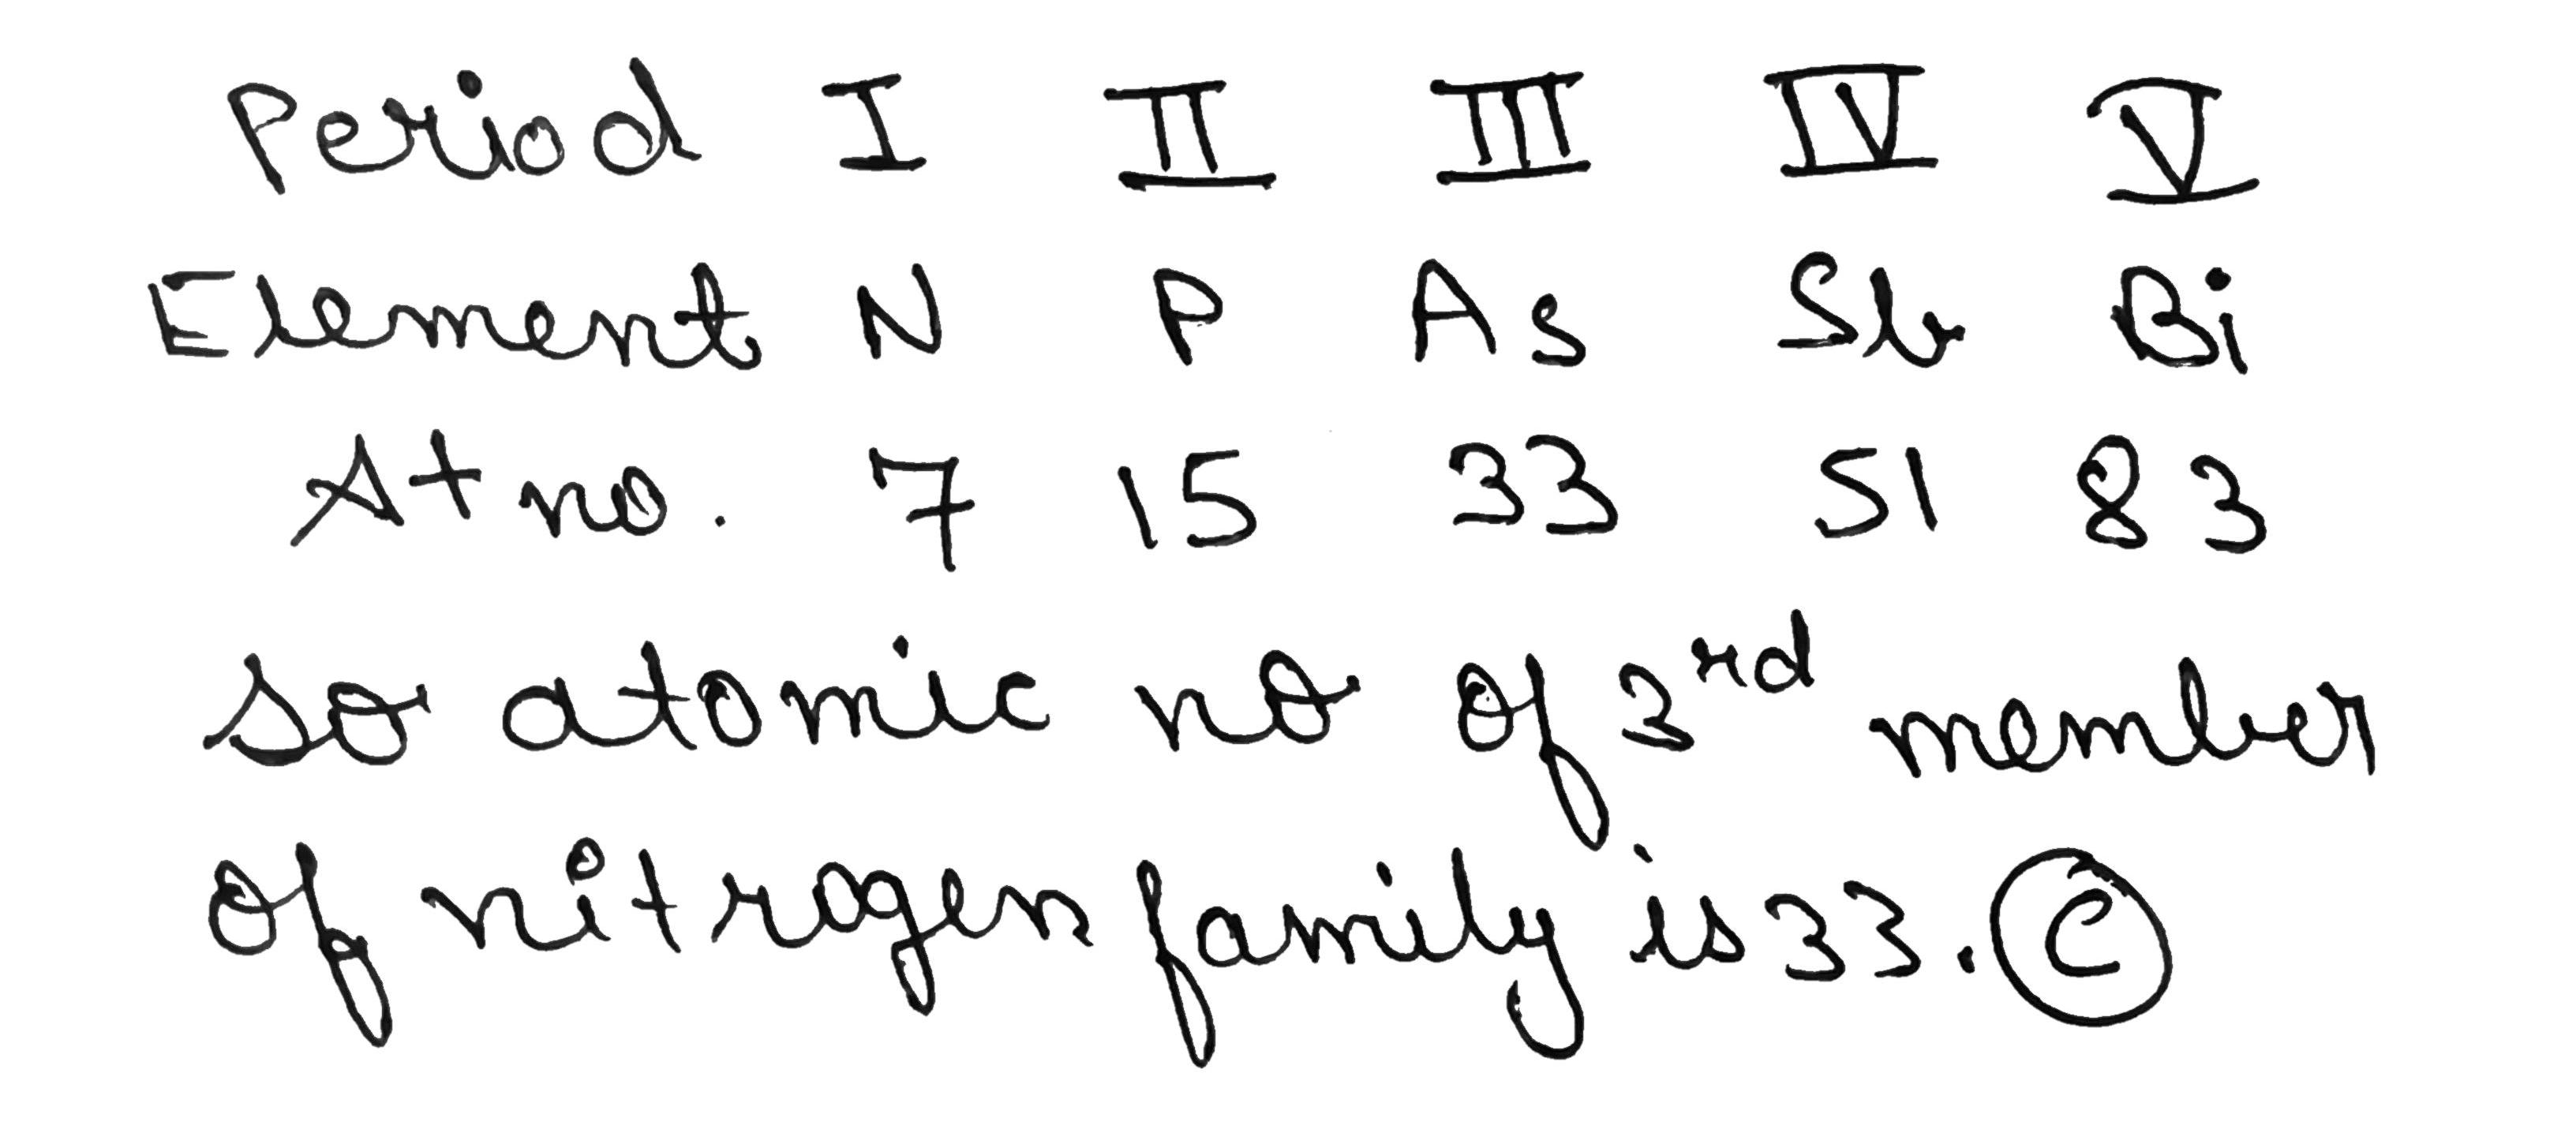 Period I II III IV V
Element N P As Sb Bi
At no. 7 15 33 51 83
so atomic no of 3rd member
of nitrogen family is 33. C